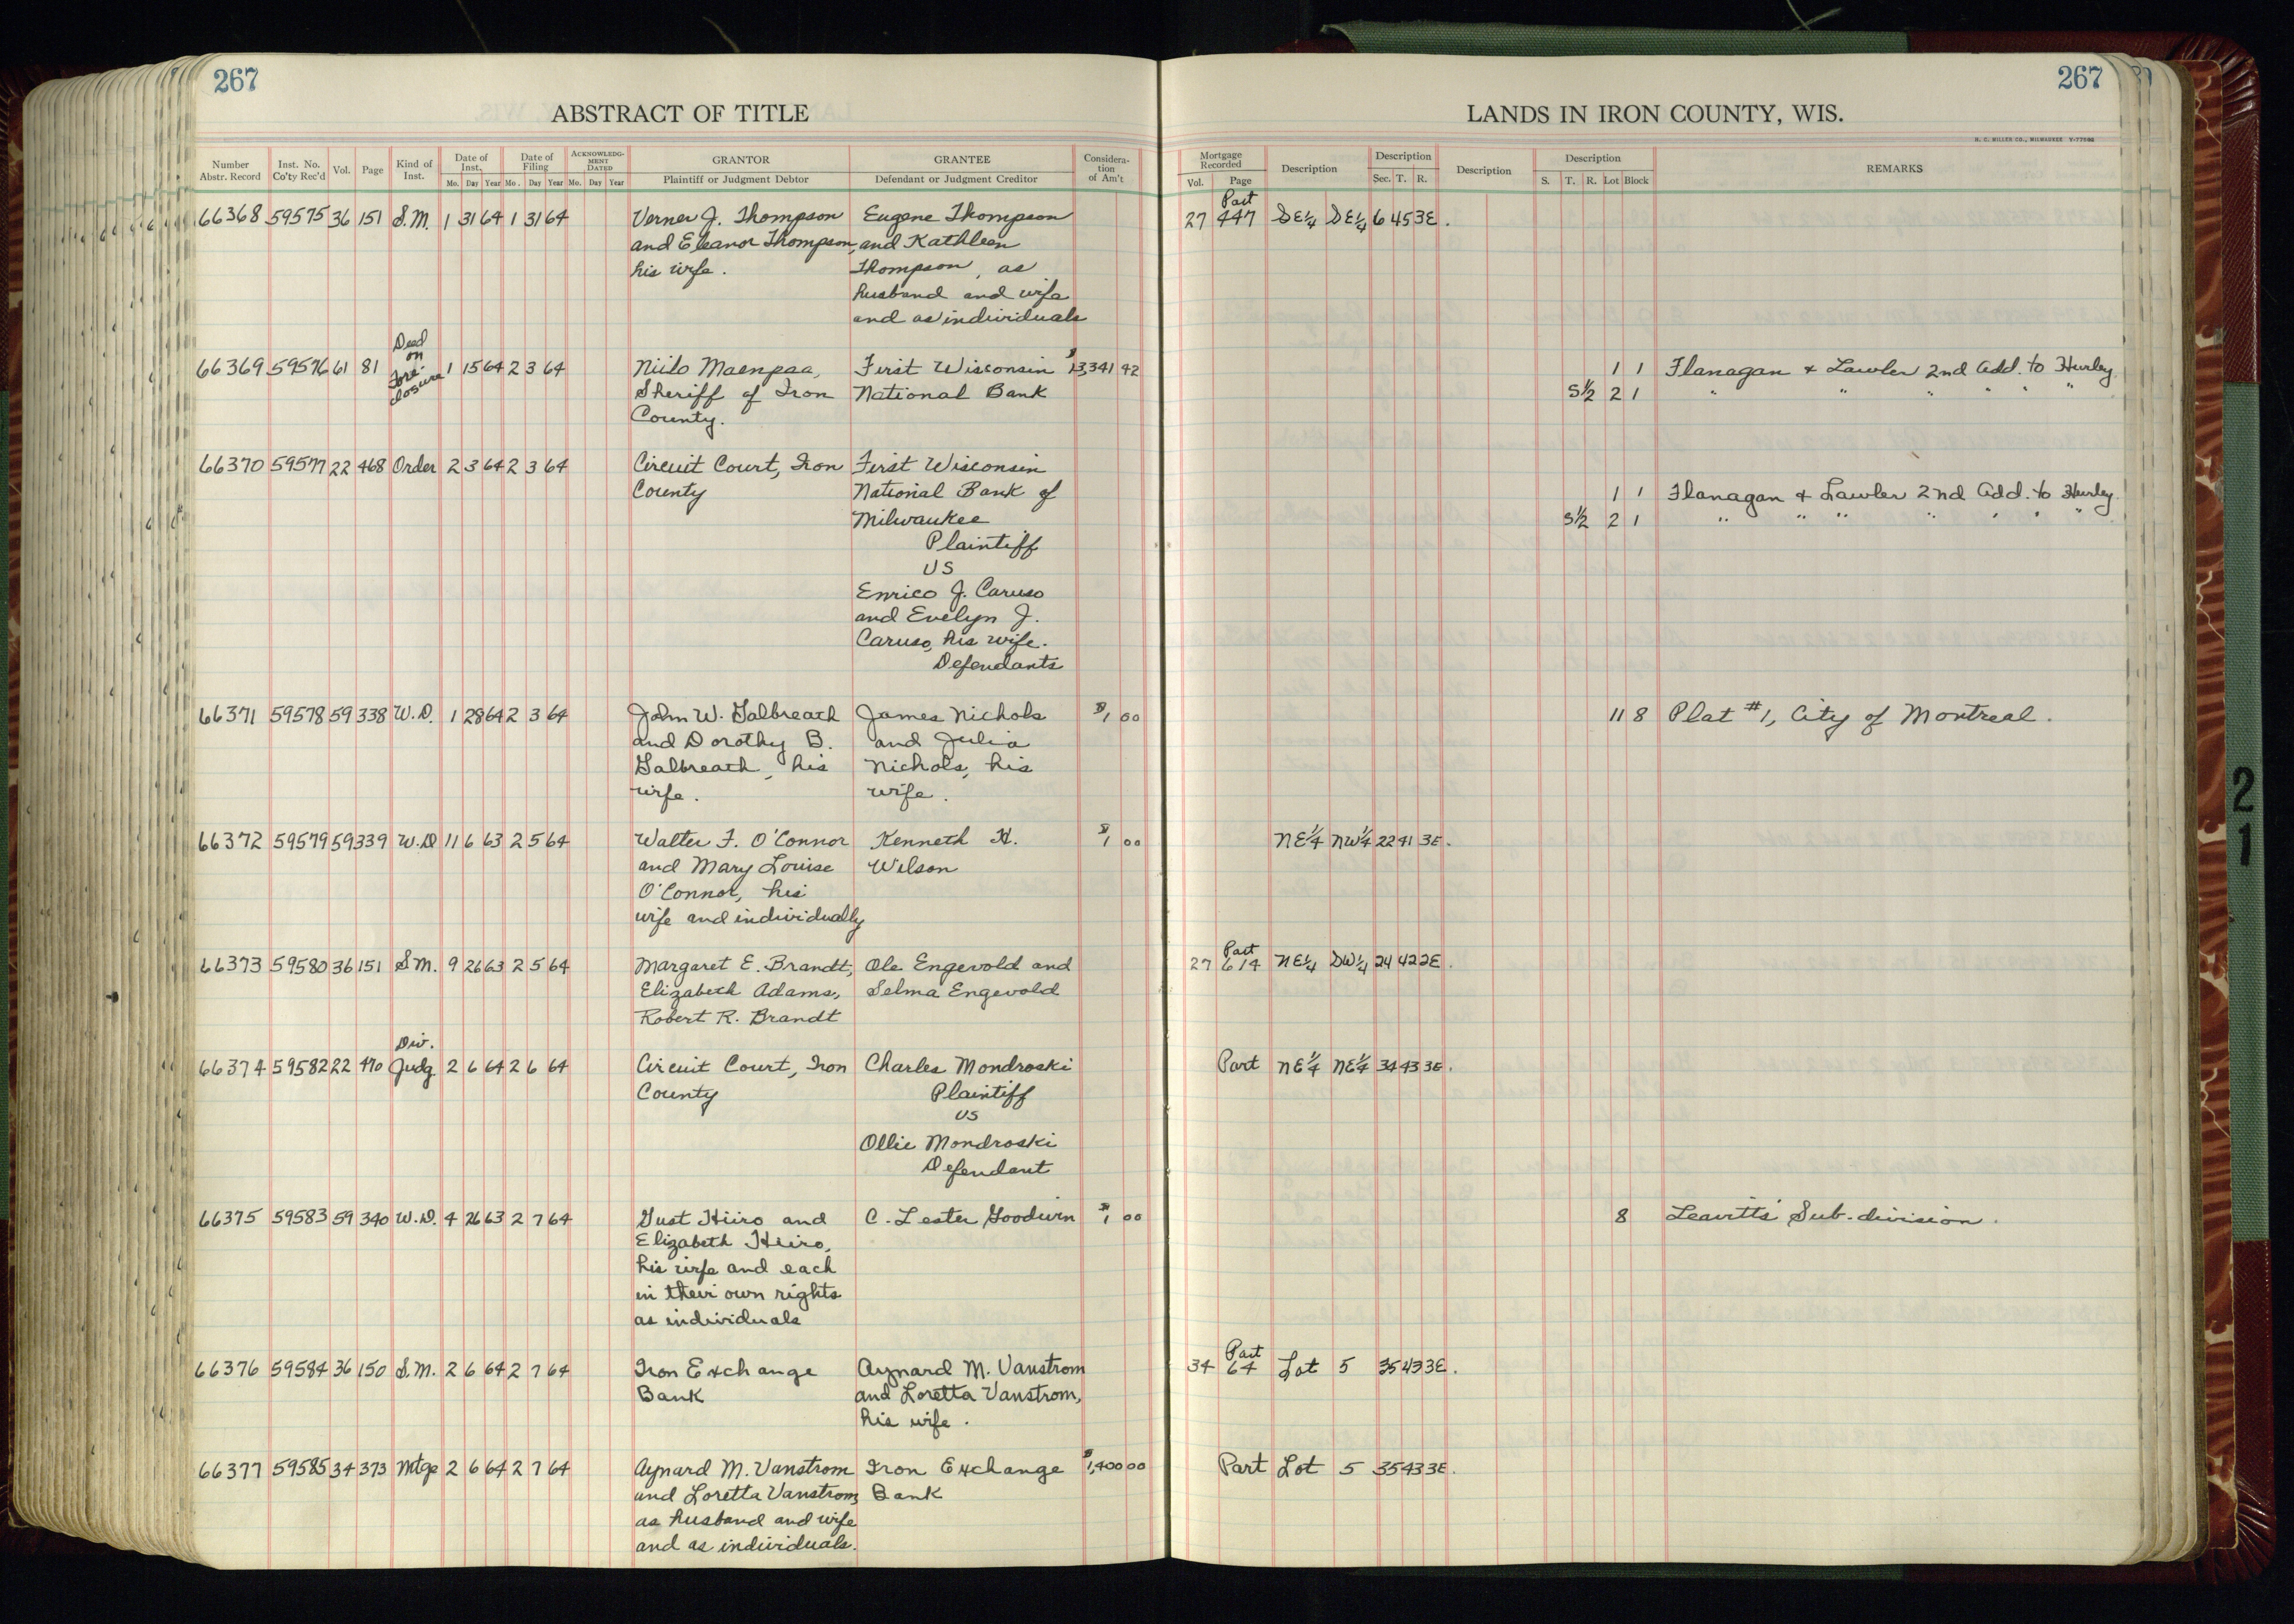 267
ABSTRACT OF TITLE
Number Abstr. Record | Inst. No. Co'ty Rec'd | Vol. | Page | Kind of Inst. | Date of Inst. Mo. Day Year | Date of Filing Mo. Day Year | ACKNOWLEDGMENT DATED Mo. Day Year | GRANTOR Plaintiff or Judgment Debtor | GRANTEE Defendant or Judgment Creditor | Consideration of Am't
66368 59575 36 151 S.M. 1 31 64 1 31 64 Verner J. Thompson Eugene Thompson
and Eleanor Thompson, and Kathleen
his wife. Thompson, as
husband and wife
and as individuals
Deed
on
66369 59576 61 81 Fore- 1 15 64 2 3 64 Niilo Maenpaa, First Wisconsin $13,341 92
closure Sheriff of Iron National Bank
County.
66370 59577 22 468 Order 2 3 64 2 3 64 Circuit Court, Iron First Wisconsin
County National Bank of
Milwaukee
Plaintiff
vs
Enrico J. Caruso
and Evelyn J.
Caruso, his wife.
Defendants
66371 59578 59 338 W.D. 1 28 64 2 3 64 John W. Galbreath James Nichols $1 00
and Dorothy B. and Julia
Galbreath, his Nichols, his
wife. wife.
66372 59579 59 339 W.D 11 6 63 2 5 64 Walter F. O'Connor Kenneth H. $1 00
and Mary Louise Wilson
O'Connor, his
wife and individually
66373 59580 36 151 S.M. 9 26 63 2 5 64 Margaret E. Brandt, Ole Engevold and
Elizabeth Adams, Selma Engevold
Robert R. Brandt
Div.
66374 59582 22 470 Judg 2 6 64 2 6 64 Circuit Court, Iron Charles Mondroski
County Plaintiff
vs
Ollie Mondroski
Defendant
66375 59583 59 340 W.D. 4 26 63 2 7 64 Gust Hiiro and C. Lester Goodwin $1 00
Elizabeth Hiiro,
his wife and each
in their own rights
as individuals
66376 59584 36 150 S.M. 2 6 64 2 7 64 Iron Exchange Aynard M. Vanstrom
Bank and Loretta Vanstrom,
his wife.
66377 59585 34 373 Mtge 2 6 64 2 7 64 Aynard M. Vanstrom Iron Exchange $1,400 00
and Loretta Vanstrom, Bank
as husband and wife
and as individuals.
267
LANDS IN IRON COUNTY, WIS.
H. C. MILLER CO., MILWAUKEE
Mortgage Recorded Vol. Page | Description | Description Sec. T. R. | Description | Description S. T. R. Lot Block | REMARKS
Part
27 447 SE1/4 SE1/4 6 45 3E.
1 1 Flanagan & Lawler 2nd Add. to Hurley
S1/2 2 1 " " " " "
1 1 Flanagan & Lawler 2nd Add. to Hurley.
S1/2 2 1 " " " " " " "
11 8 Plat #1, City of Montreal.
NE1/4 NW1/4 22 41 3E.
Part
27 614 NE1/4 SW1/4 24 42 2E.
Part NE1/4 NE1/4 34 43 3E.
8 Leavitt's Sub-division.
Part
34 64 Lot 5 35 43 3E.
Part Lot 5 35 43 3E.
21